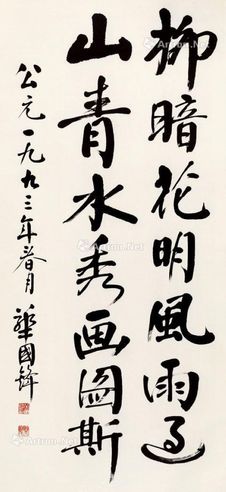 柳暗花明風雨過
山青水秀画図斯
公元一九九三年春月
華國鋒